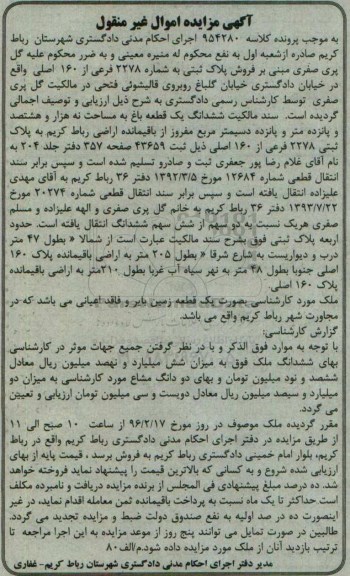 آگهی مزایده اموال غیر منقول
به موجب پرونده کلاسه ۹۵۴۲۸۰ اجرای احکام مدنی دادگستری شهرستان رباط
کریم صادره ازشعبه اول به نفع محکوم له منیره معینی و به ضرر محکوم علیه گل
پری صفری مبنی بر فروش پلاک ثبتی به شماره ۲۲۷۸ فرعی از ۱۶۰ اصلی واقع
در خیابان دادگستری خیابان گلباغ روبروی قالیشوئی فتحی در مالکیت گل پری
صفری توسط کارشناس رسمی دادگستری به شرح ذیل ارزیابی و توصیف اجمالی
گردیده است. سند مالکیت ششدانگ یک قطعه باغ به مساحت نه هزار و هشتصد
و پانزده متر و پانزده دسیمتر مربع مفروز از باقیمانده اراضی رباط کریم به پلاک
ثبتی ۲۲۷۸ فرعی از ۱۶۰ اصلی ذیل ثبت ۴۳۶۵۹ صفحه ۳۵۷ دفتر جلد ۲۰۴ به
نام آقای غلام رضا پور جعفری ثبت و صادرو تسلیم شده است و سپس برابر سند
انتقال قطعی شماره ۱۲۶۸۴ مورخ ۱۳۹۲/۳/۵ دفتر ۳۶ رباط کریم به آقای مهدی
علیزاده انتقال یافته است و سپس برابر سند انتقال قطعی شماره ۲۰۲۷۴ مورخ
۱۳۹۳/۷/۲۲ دفتر ۳۶ رباط کریم به خانم گل پری صفری و الهه علیزاده و مسلم
صفری هریک نسبت به دو سهم از شش سهم ششدانگ انتقال یافته است. حدود
اربعه پلاک ثبتی فوق بشرح سند مالکیت عبارت است از شمالا « بطول ۴۷ متر
درب و دیواریست به شارع شرقا « بطول ۲۰۵ متر به اراضی باقیمانده پلاک ۱۶۰
اصلی جنوبا بطول ۴۸ متر به نهر سیاه آب غربا بطول ۲۱۰متر به اراضی باقیمانده
پلاک ۱۶۰ اصلی.
ملک مورد کارشناسی بصورت یک قطعه زمین بایر و فاقد اعیانی می باشد که در
مجاورت شهر رباط کریم واقع می باشد.
گزارش کارشناسی:
با توجه به موارد فوق الذکر و با در نظر گرفتن جمیع جهات موثر در کارشناسی
بهای ششدانگ ملک فوق به میزان شش میلیارد و نهصد میلیون ریال معادل
ششصد و نود میلیون تومان و بهای دو دانگ مشاع مورد کارشناسی به میزان دو
میلیارد و سیصد میلیون ریال معادل دویست و سی میلیون تومان ارزیابی و تعیین
می گردد.
مقرر گردیده ملک موصوف در روز مورخ ۹۶/۲/۱۷ از ساعت ۱۰ صبح الی ۱۱
از طریق مزایده در دفتر اجرای احکام مدنی دادگستری رباط کریم واقع در رباط
کریم، بلوار امام خمینی دادگستری رباط کریم به فروش برسد ، قیمت پایه از بهای
ارزیابی شده شروع و به کسانی که بالاترین قیمت را پیشنهاد نماید فروخته خواهد
شد. ده درصد مبلغ پیشنهادی فی المجلس از برنده مزایده دریافت و نامبرده مکلف
است.حداکثر تا یک ماه نسبت به پرداخت باقیمانده ثمن معامله اقدام نماید، در غیر
اینصورت ده در صد اولیه به نفع صندوق دولت ضبط و مزایده تجدید می گردد.
طالبین در صورت تمایل می توانند پنج روز از موعد مزایده به این اجرا مراجعه تا
ترتیب بازدید آنان از ملک مورد مزایده داده شود.م/الف۸۰
مدیر دفتر اجرای احکام مدنی دادگستری شهرستان رباط کریم- غفاری